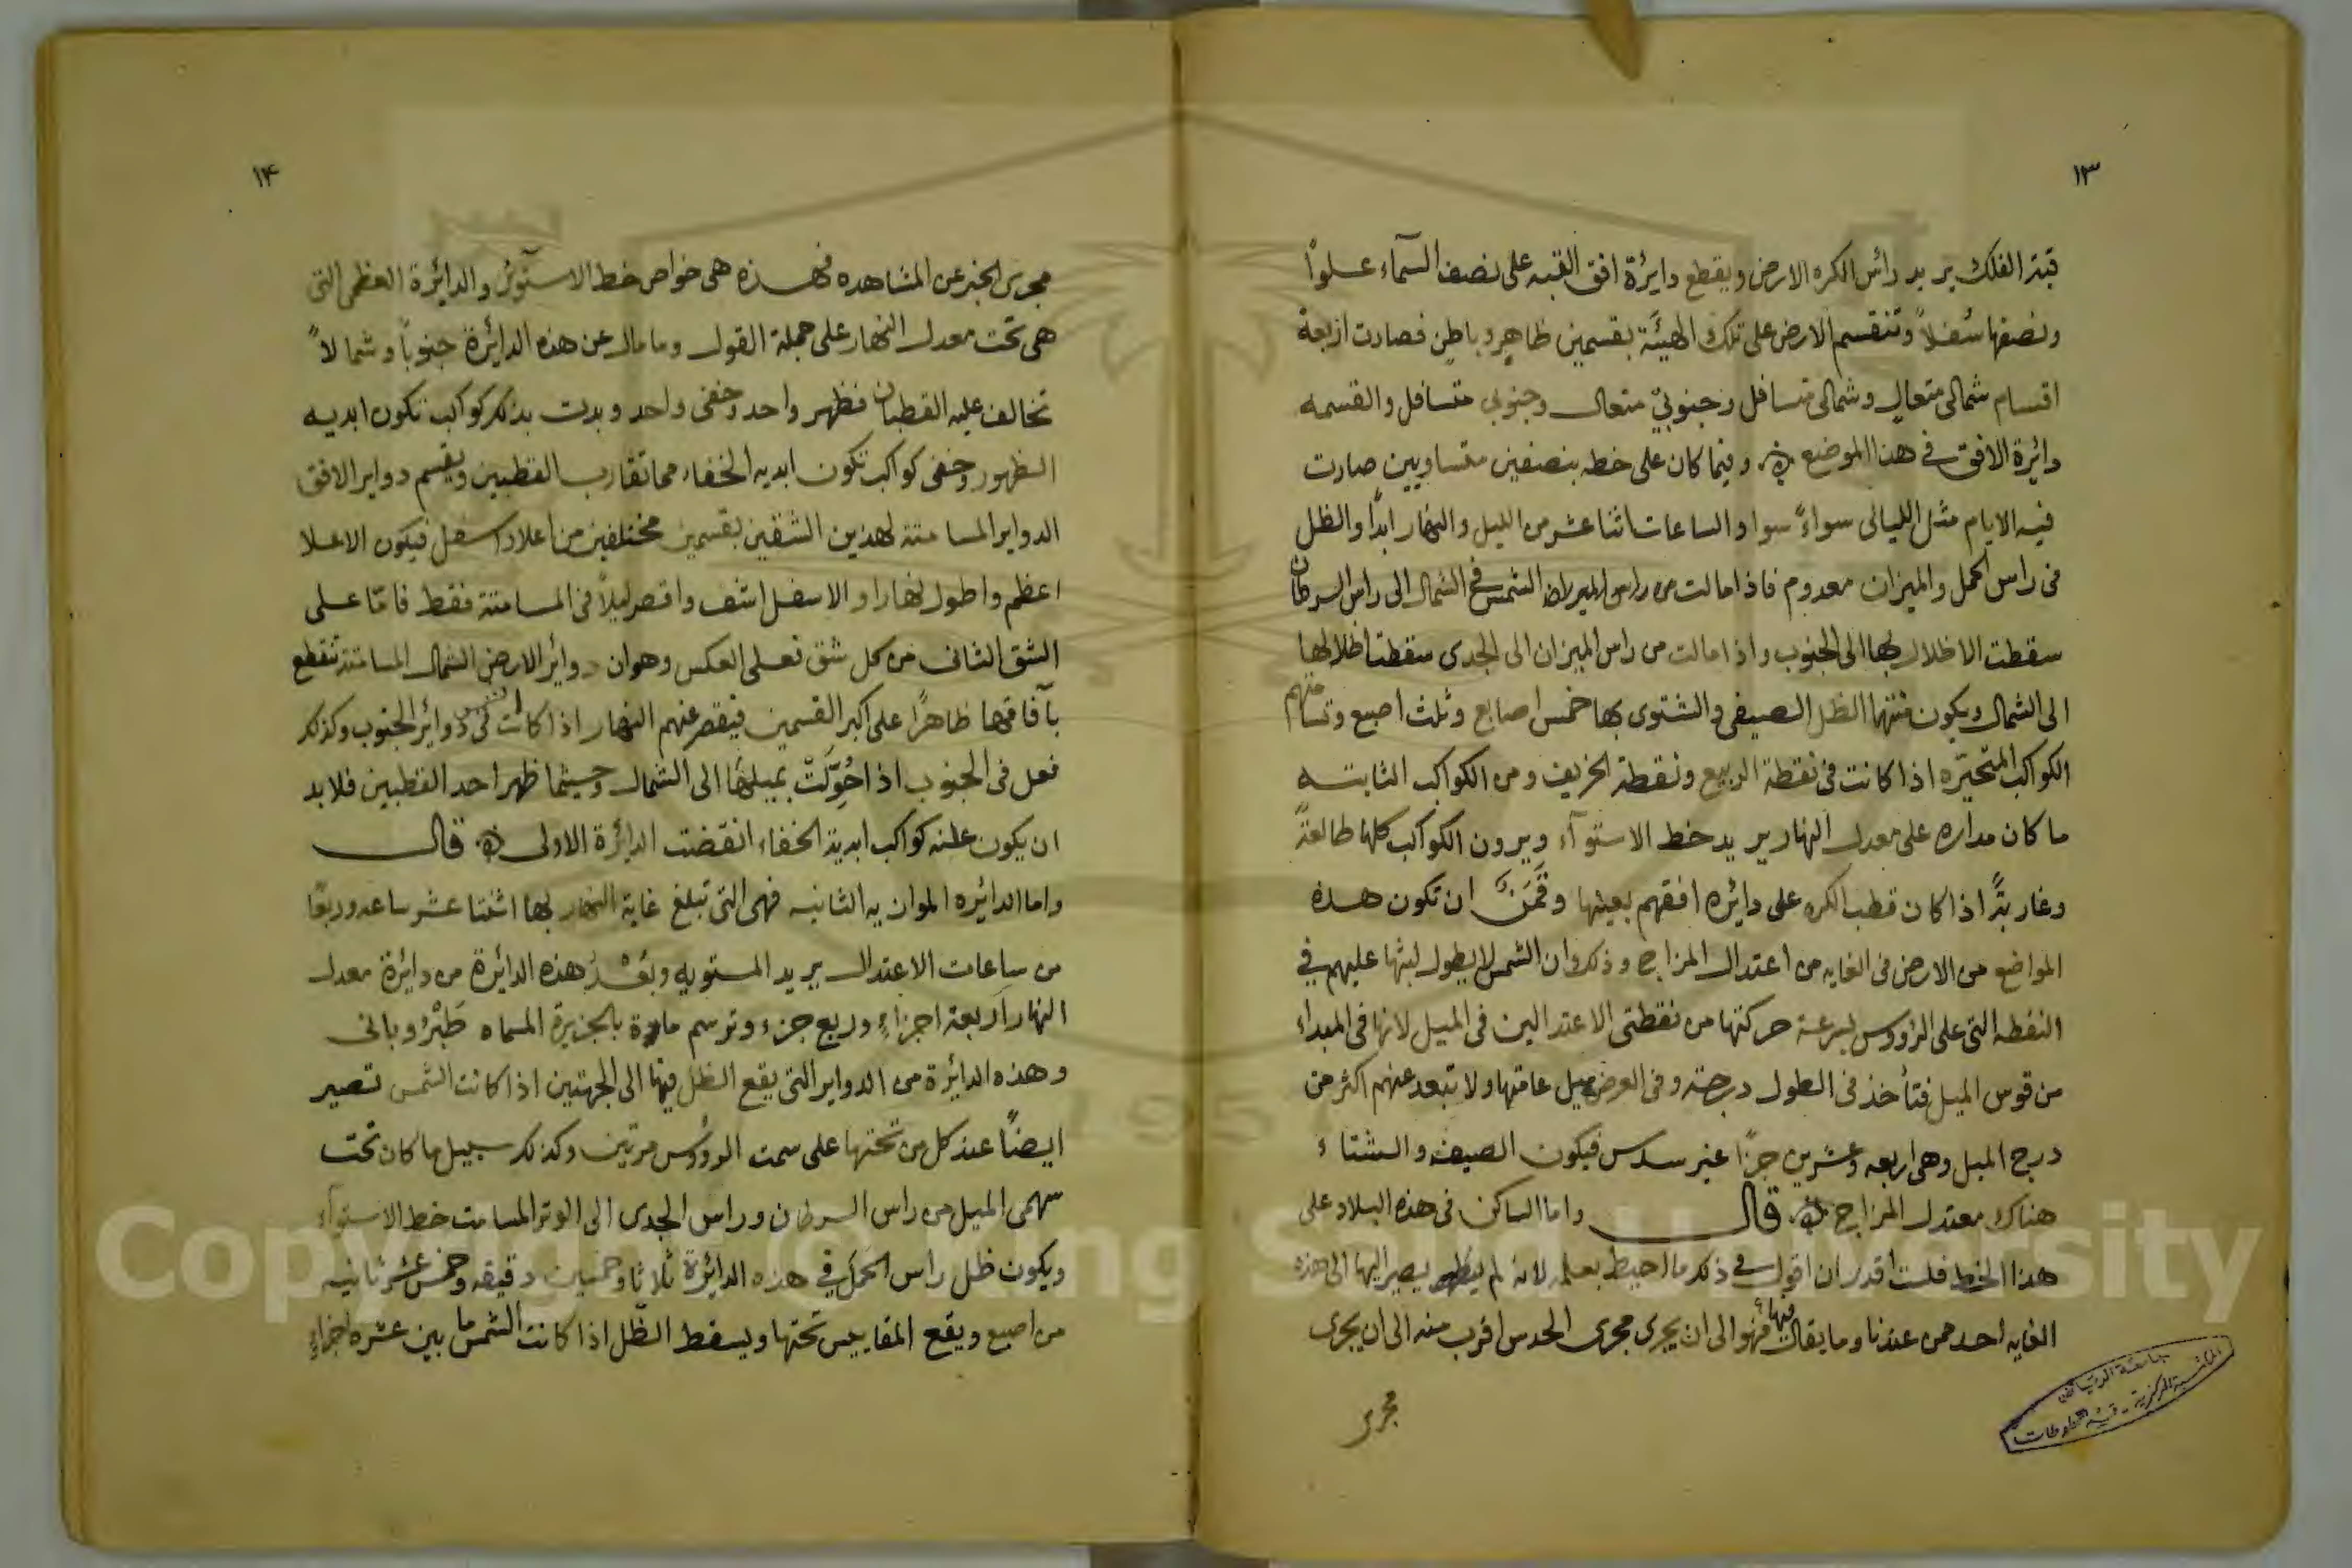 ١٣
قبة الفلك يريد رأس الكره الارض ويقطع دايرة افق القبه على نصف السمآء علواً
ونصفها سُفلاً وتنقسم الارض على تلك الهيئَة بقسمين ظاهرٍ وباطن فصارت اربعة
اقسام شمالى متعالٍ وشمالى متسافل وجنوبيّ متعال وجنوبي متسافل والقسمه
دائرة الافق في هذا الموضع وفيما كان على خطه بنصفين متساويين صارت
فيه الايام مثل الليالى سواءً سوا والساعات اثنا عشر من الليل والنهار ابداً والظل
فى راس الحمل والميزان معدوم فاذا مالت من راس الشمس في الشمال الى راس السرطان
سقطت الاظلال بها الى الجنوب واذا مالت من راس الميزان الى الجدى سقطت اظلالها
الى الشمال ويكون منتهاا الظل الصيفى والشتوى بها خمس اصابع وثلث اصبع وتسامتهم
الكواكب المتحيّره اذا كانت فى نقطة الربيع ونقطة الخريف ومن الكواكب الثابته
ما كان مداره على معدل النهار يريد خط الاستوآء ويرون الكواكب كلها طالعةً
وغاربةً اذا كان قطب الكره على دائره افقهم بعينها وقَمَنٌ ان تكون هذه
المواضع من الارض فى الغايه من اعتدال المزاج وذلك ان الشمس لا يطول لبثها عليهم في
النقطه التى على الرؤوس لسرعة حركتها من نقطتى الاعتدالين فى الميل لانها فى المبداء
من قوس الميل فتأخذ فى الطول درجته وفى العرض ميل عامتها ولا تبعد عنهم اكثر من
درج الميل وهى اربعه وعشرين جزًا غير سدس فيكون الصيف والشتاء
هناك معتدل المزاج قال واما الساكن فى هذه البلاد على
هذا الخط فلست اقدر ان اقول في ذلك ما احيط بعلمه لانه لم يصير اليها الى هذه
الغايه احد ممن عندنا وما يقال فيها فهو الى ان يجرى مجرى الحدس اقرب منه الى ان يجرى
مجرى
جامعة الرياض
المكتبة المركزية - قسم المخطوطات
١٤
مجرى الخبر عن المشاهده فهذه هى خواص خط الاستوآئى والدائرة العظمى التى
هى تحت معدل النهار على جملة القول وما مال عن هذه الدائرة جنوباً وشمالاً
تخالف عليه القطبان فظهر واحد وخفى واحد وبدت بذلك كواكب تكون ابديه
الظهور وخفى كواكب تكون ابديه الخفاء مما تقارب القطبين ويقسم دواير الافق
الدواير المسامتة لهذين الشقين بقسمين مختلفين من اعلا واسفل فيكون الاعلا
اعظم واطول نهارا والاسفل اشف واقصر ليلاً فى المسامتة فقط فامّا على
الشق الثانى من كل شق فعلى العكس وهو ان دوائر الارض الشمال المسامتة تقطع
بآفاقها ظاهرًا على اكبر القسمين فيقصر عنهم النهار اذا كانت الشمس فى دوائر الجنوب وكذلك
فعل فى الجنوب اذا حُوّلَتْ بميلها الى الشمال وحيثما ظهر احد القطبين فلا بد
ان يكون كواكب ابدية الخفاء انقضت الدائرة الاولى قال
واما الدائره الموازيه الثانيه فهى التى تبلغ غاية النهار بها اثنتا عشر ساعه وربعًا
من ساعات الاعتدال يريد المستويه وبُعْدُ هذه الدائرة من دائرة معدل
النهار اربعة اجزاءٍ وربع جزء وترسم مارة بالجزيرة المسماه طَبْرُوبانى
وهذه الدائرة من الدواير التى يقع الظل فيها الى الجهتين اذا كانت الشمس تصير
ايضًا عند كل من تحتها على سمت الرؤوس مرتين وكذلك سبيل ما كان تحت
سهمى الميل من راس السرطان وراس الجدى الى الوتر المسامت خط الاستوآء
ويكون ظل راس الحمل في هذه الدائرة ثلاثا وخمسين دقيقه وخمس عشر ثانيه
من اصبع ويقع المقاييس تحتها ويسقط الظّل اذا كانت الشمس ما بين عشره اجزاءٍ